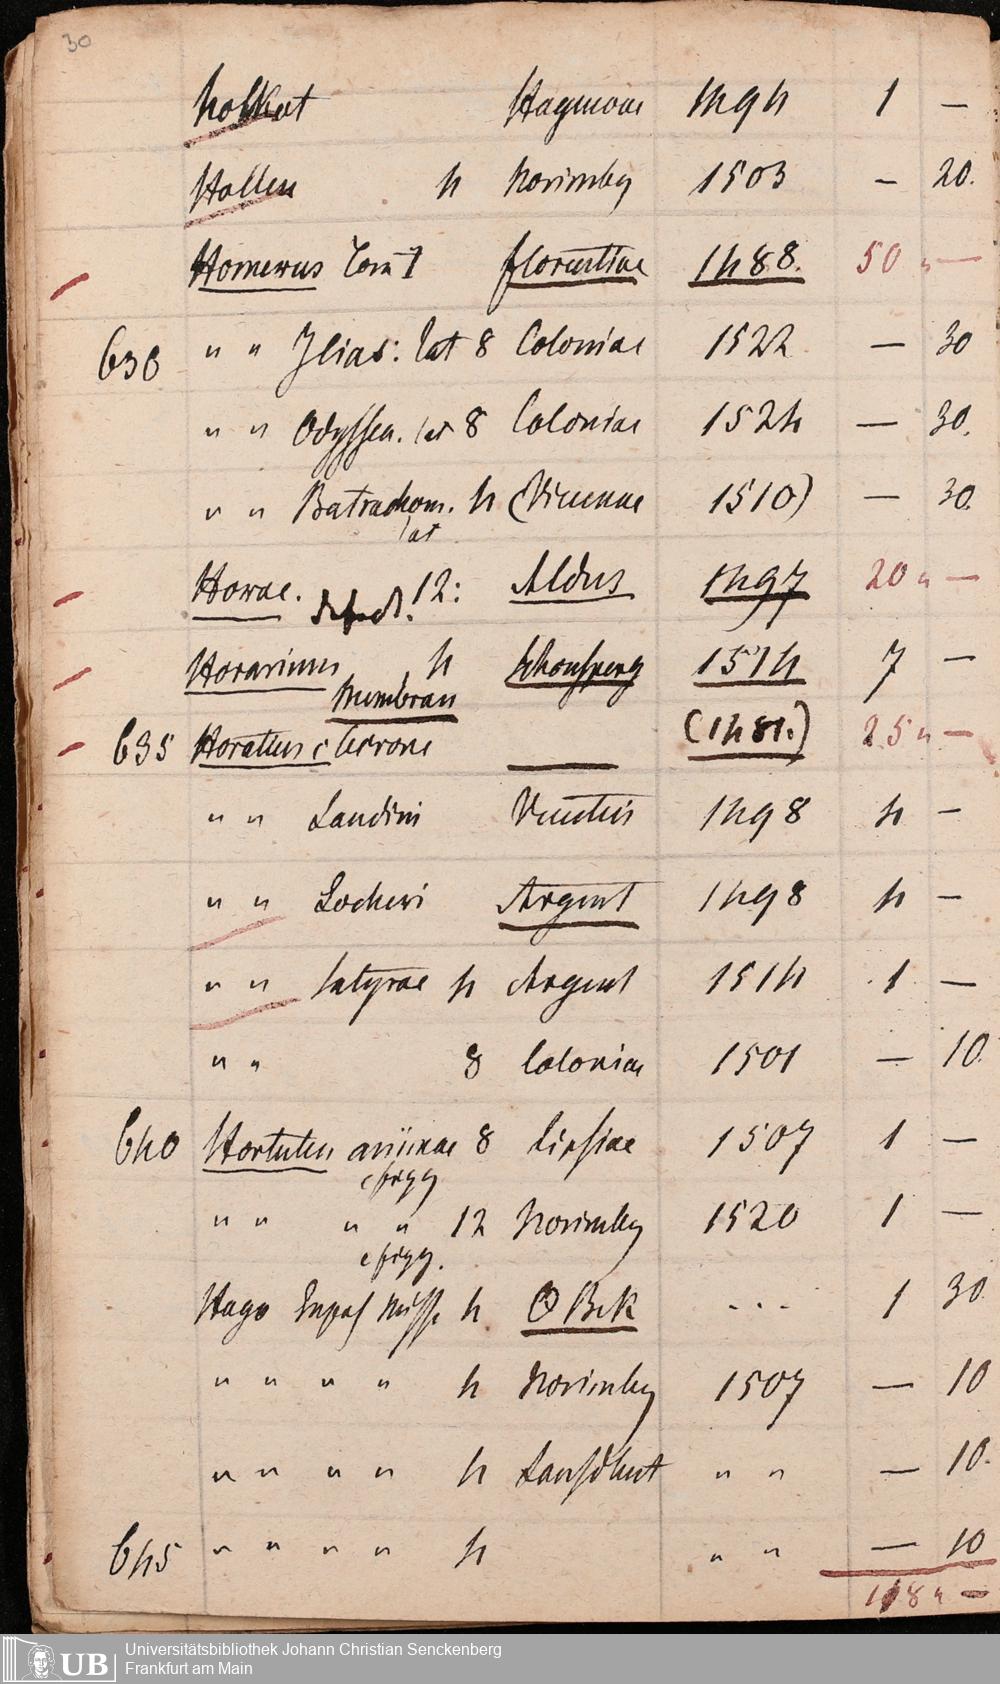 30
Holkot Hagenoae 1494 1 —
Hollen 4 Norimbg 1503 — 20.
Homerus Tom 1 florentiae 1488. 50 " —
630 " " Ilias: lat 8 Coloniae 1522 — 30
" " Odyssea. lat 8 Coloniae 1524 — 30.
" " Batrachom. 4 (Viennae 1510) — 30.
lat
Horae. 12: Aldus 1497 20 " —
defect.
Horarium 4 Schonsperg 1514 7 —
Membran
635 Horatius c. — (1481.) 25 " —
" " Landini Venetiis 1498 4 —
" " Locheri Argent 1498 4 —
" " Satyrae 4 Argent 1514 1 —
" " 8 Coloniae 1501 — 10.
640 Hortulus animae 8 Lipsiae 1507 1 —
c figg
" " " " 12 Norimbg 1520 1 —
c figg.
Hugo Expos Misse 4 O Bek . . . 1 30
" " " " 4 Norimbg 1507 — 10
" " " " 4 Landshut " " — 10.
645 " " " " 4 " " — 10
118 " —
UB Universitätsbibliothek Johann Christian Senckenberg
Frankfurt am Main